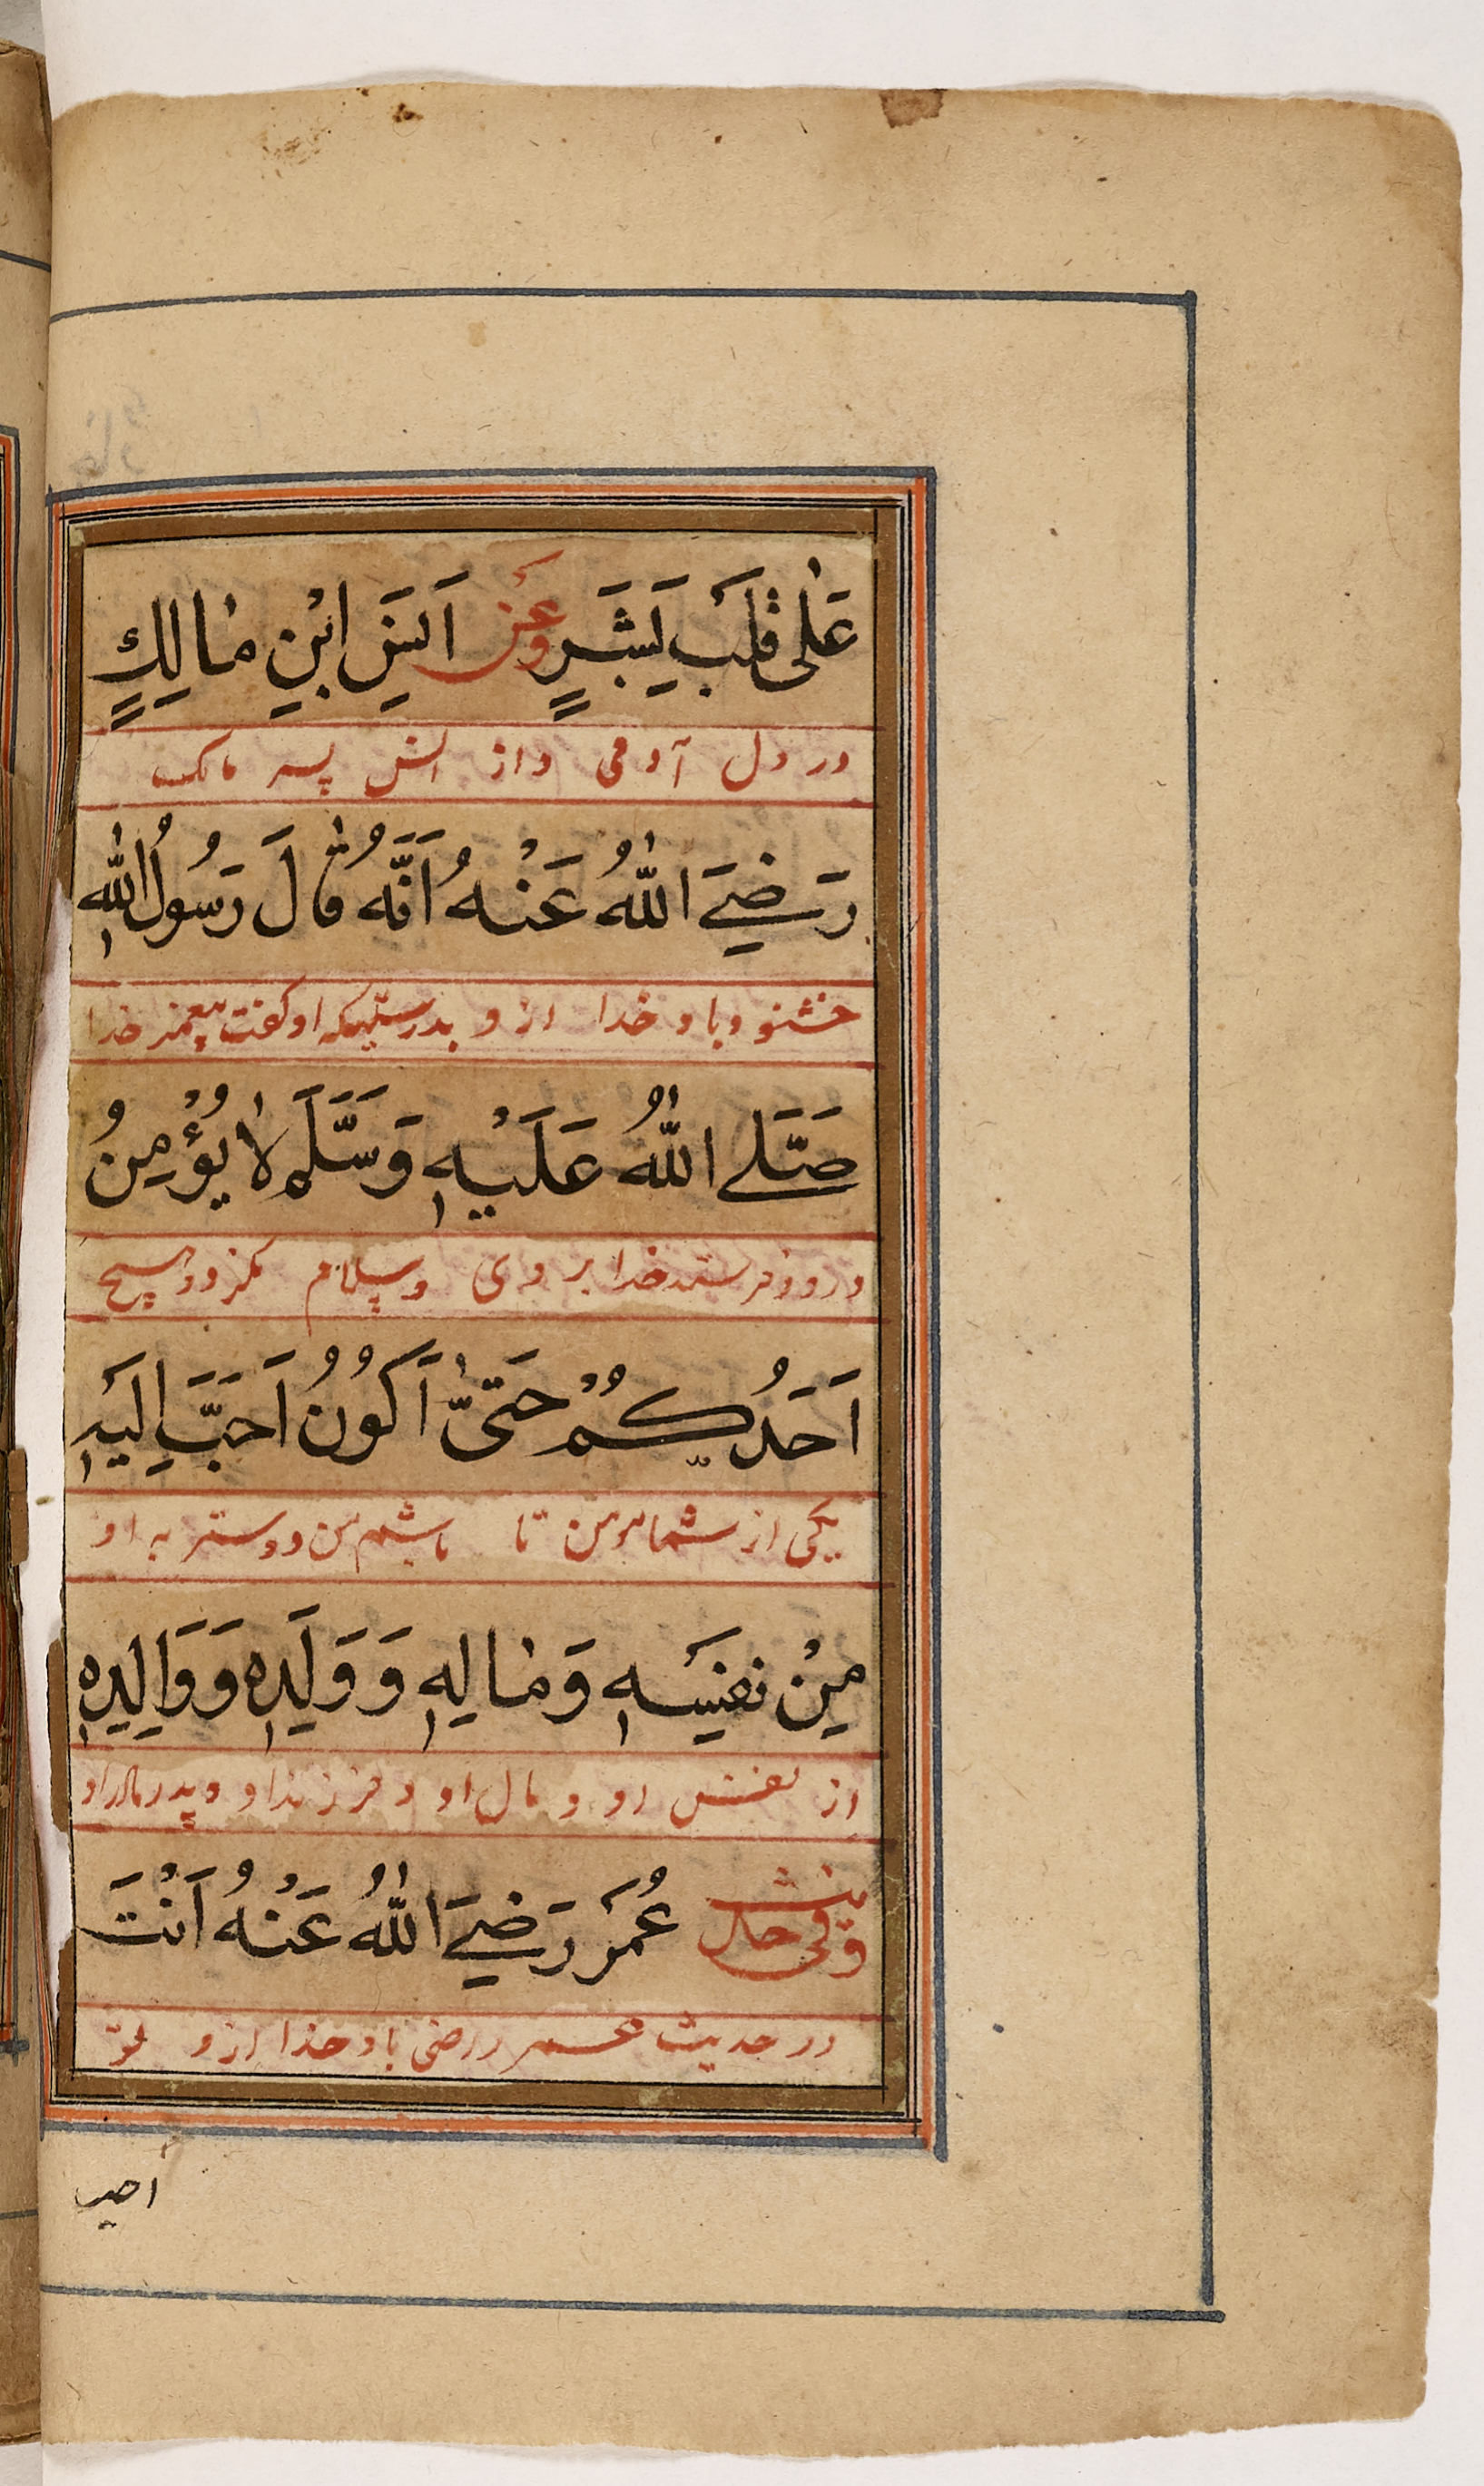 عَلٰى قَلْبِ بَشَرٍ وَعَنْ اَنَسِ ابْنِ مٰالِكٍ
در دل آدمی و از انس پسر مالک
رَضِيَ اللّٰهُ عَنْهُ اَنَّهُ قٰالَ رَسُولُ اللّٰهِ
خشنود باد خدا از و بدرستیکه او گفت پیغمبر خدا
صَلَّى اللّٰهُ عَلَيْهِ وَسَلَّمَ لٰا يُؤْمِنُ
درود فرستد خدا بر وی و سلام نگرود هیچ
اَحَدُكُمْ حَتّٰى اَكُونُ اَحَبَّ اِلَيْهِ
یکی از شما مومن تا باشم من دوستر به او
مِنْ نَفْسِهِ وَمٰالِهِ وَوَلَدِهِ وَوَالِدِهِ
از نفس او و مال او و فرزند او و پدر مادر او
وفی حدیث عُمَرَ رَضِيَ اللّٰهُ عَنْهُ اَنْتَ
در حدیث عمر راضی باد خدا از و تو
احب